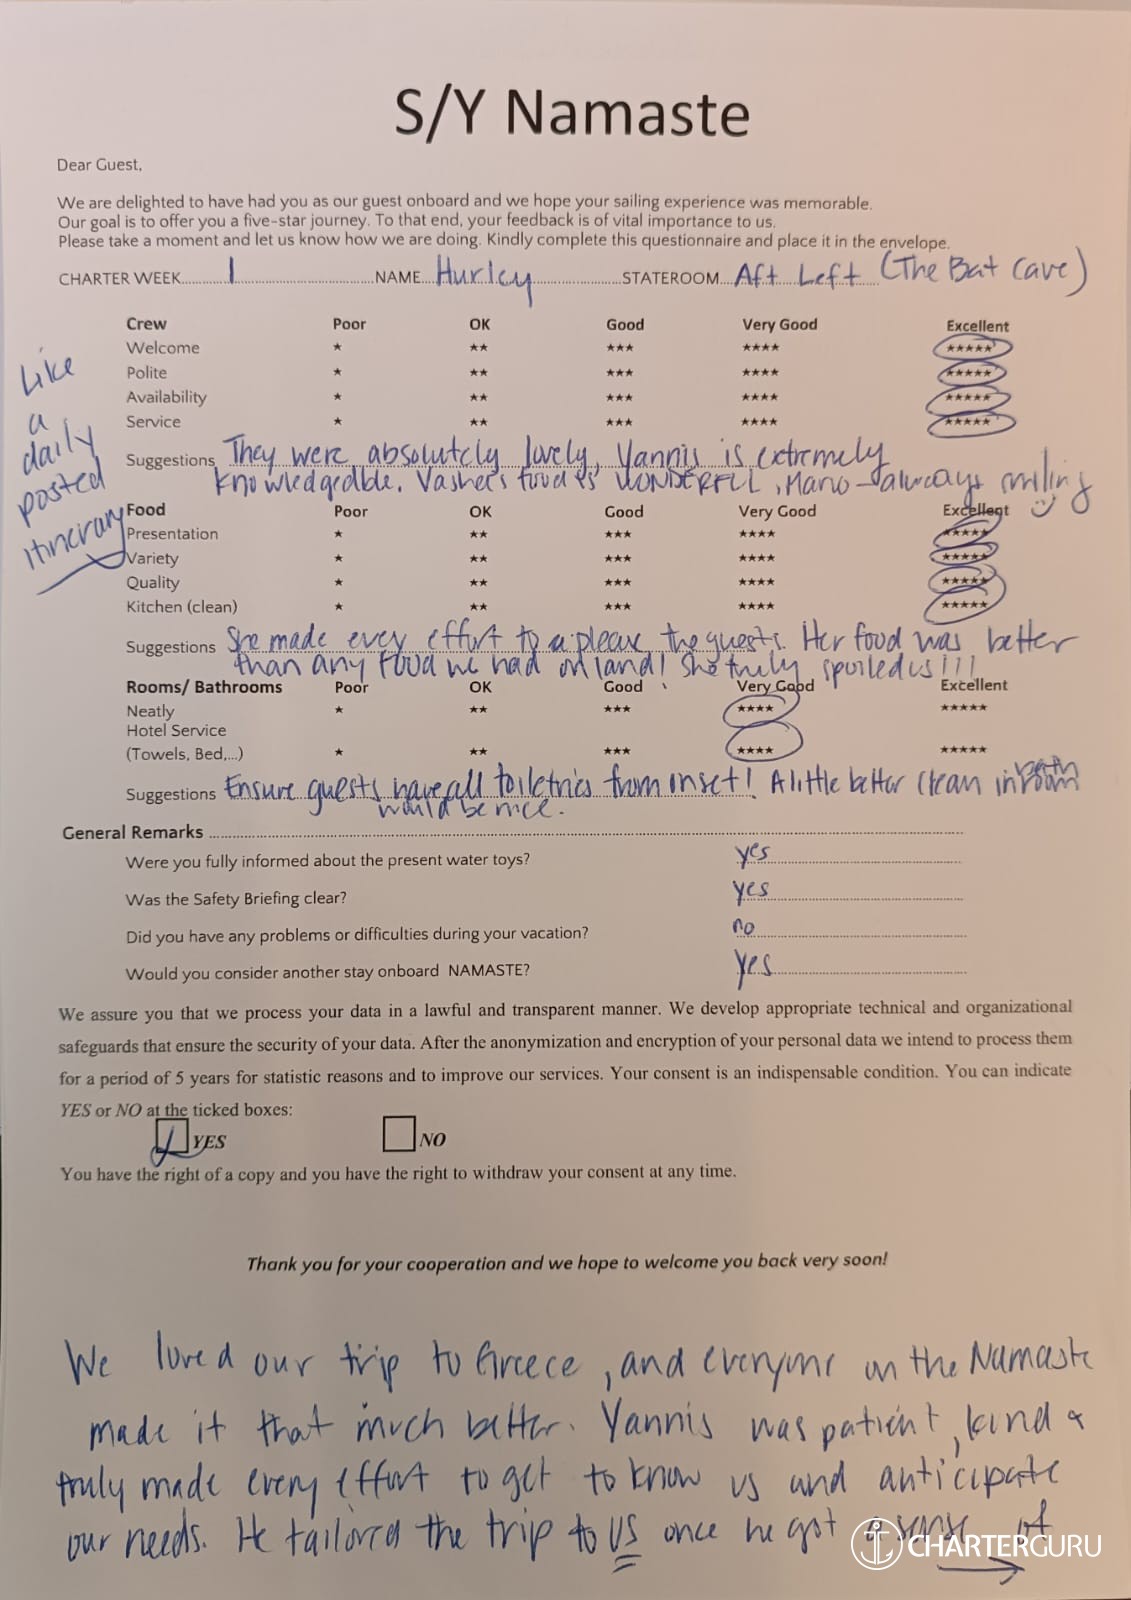 S/Y Namaste
Dear Guest,
We are delighted to have had you as our guest onboard and we hope your sailing experience was memorable.
Our goal is to offer you a five-star journey. To that end, your feedback is of vital importance to us.
Please take a moment and let us know how we are doing. Kindly complete this questionnaire and place it in the envelope.
CHARTER WEEK 1 NAME Hurley STATEROOM Aft Left (The Bat Cave)
Crew Poor OK Good Very Good Excellent
Welcome ★ ★★ ★★★ ★★★★ ★★★★★
Polite ★ ★★ ★★★ ★★★★ ★★★★★
Availability ★ ★★ ★★★ ★★★★ ★★★★★
Service ★ ★★ ★★★ ★★★★ ★★★★★
Suggestions They were absolutely lovely, Yannis is extremely
knowledgeable. food is WONDERFUL, Mario always smiling
Like
a
daily
posted
itinerary
Food Poor OK Good Very Good Excellent
Presentation ★ ★★ ★★★ ★★★★ ★★★★★
Variety ★ ★★ ★★★ ★★★★ ★★★★★
Quality ★ ★★ ★★★ ★★★★ ★★★★★
Kitchen (clean) ★ ★★ ★★★ ★★★★ ★★★★★
Suggestions She made every effort to please the guests. Her food was better
than any food we had on land! She truly spoiled us!!!
Rooms/ Bathrooms Poor OK Good Very Good Excellent
Neatly ★ ★★ ★★★ ★★★★ ★★★★★
Hotel Service
(Towels, Bed,...) ★ ★★ ★★★ ★★★★ ★★★★★
Suggestions Ensure guests have all toiletries from onset! A little better clean in bath room
would be nice.
General Remarks
Were you fully informed about the present water toys? yes
Was the Safety Briefing clear? yes
Did you have any problems or difficulties during your vacation? no
Would you consider another stay onboard NAMASTE? yes
We assure you that we process your data in a lawful and transparent manner. We develop appropriate technical and organizational
safeguards that ensure the security of your data. After the anonymization and encryption of your personal data we intend to process them
for a period of 5 years for statistic reasons and to improve our services. Your consent is an indispensable condition. You can indicate
YES or NO at the ticked boxes:
YES NO
You have the right of a copy and you have the right to withdraw your consent at any time.
Thank you for your cooperation and we hope to welcome you back very soon!
We loved our trip to Greece, and everyone on the Namaste
made it that much better. Yannis was patient, kind &
truly made every effort to get to know us and anticipate
our needs. He tailored the trip to us once he got a sense of
CHARTERGURU